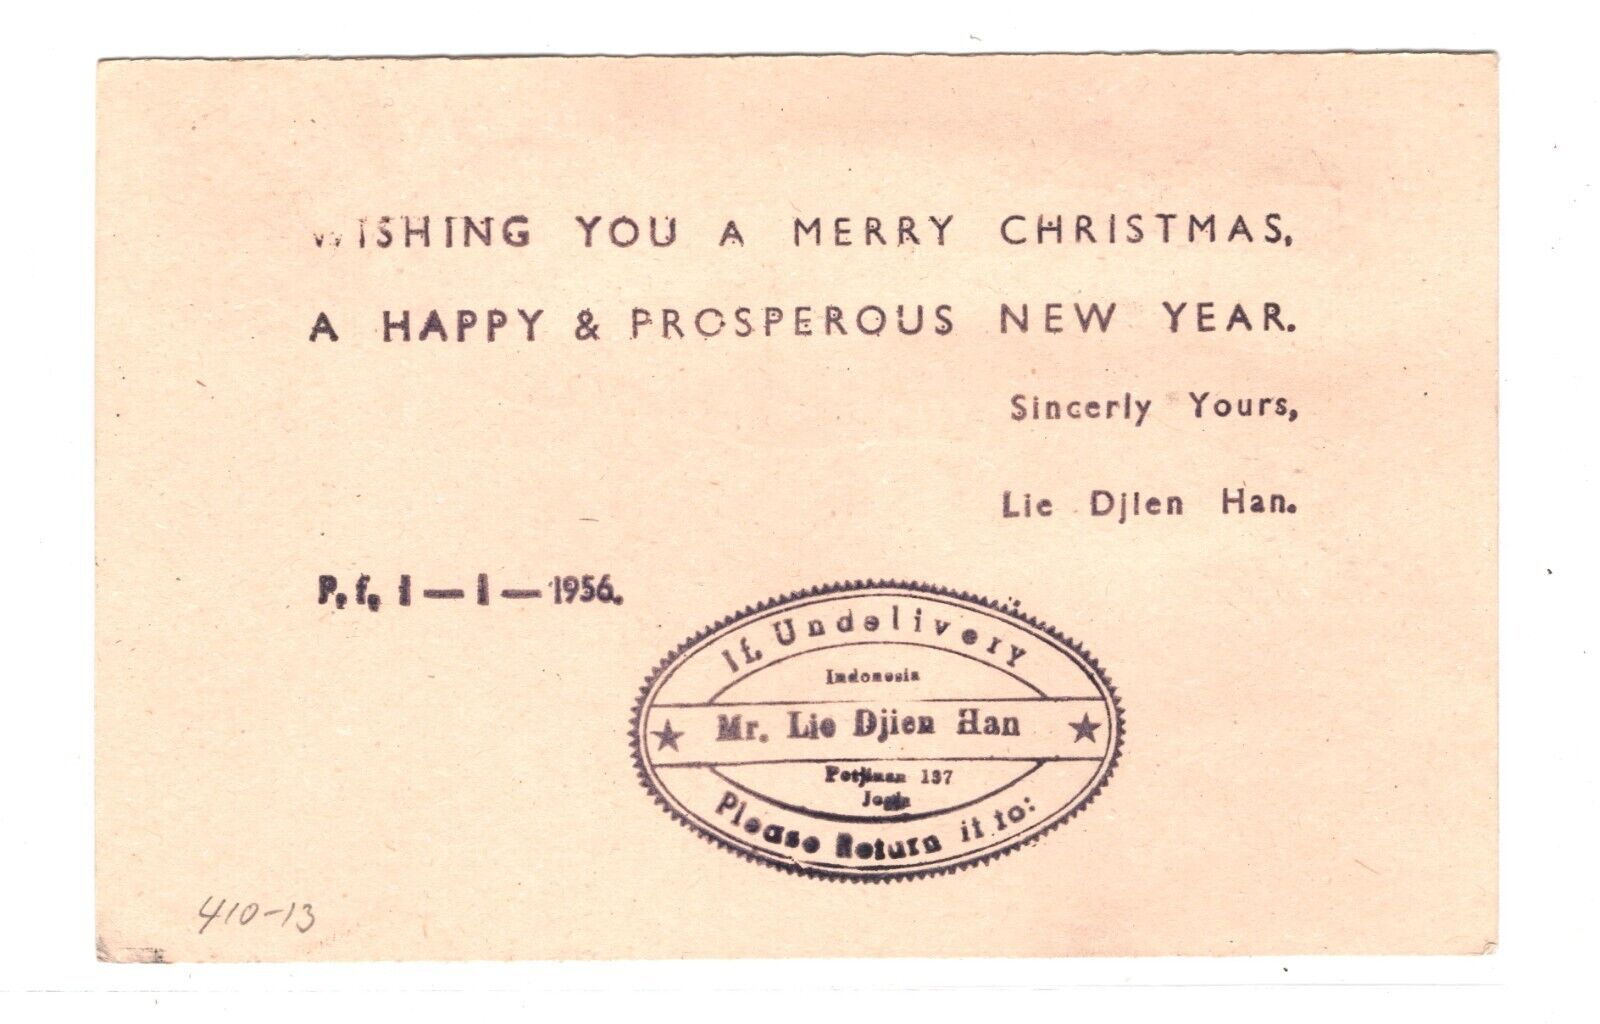 WISHING YOU A MERRY CHRISTMAS,
A HAPPY & PROSPEROUS NEW YEAR.
Sincerly Yours,
Lie Djien Han.
P. f. 1 — 1 — 1956.
If Undelivery
Indonesia
Mr. Lie Djien Han
Petjinan 137
Jogja
Please Return it to:
410-13